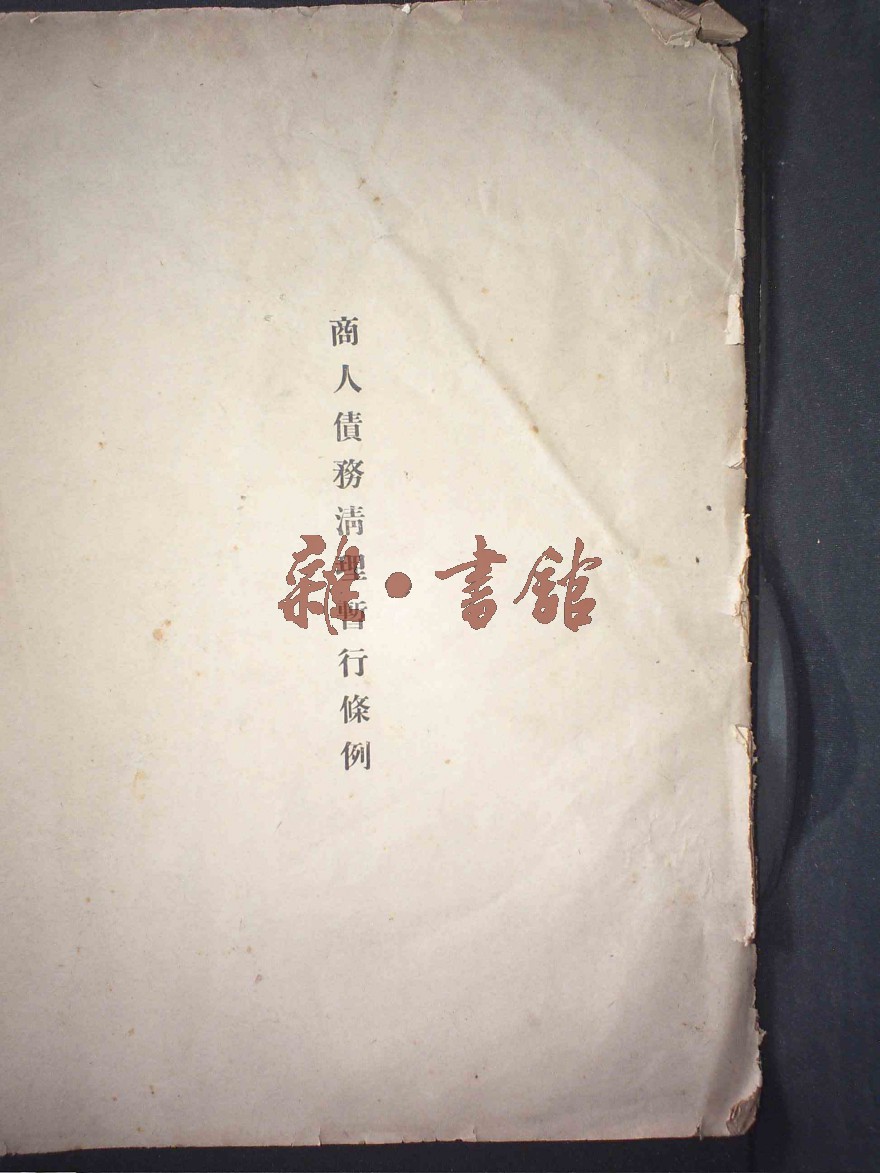 商人債務淸理暫行條例
雜·書館